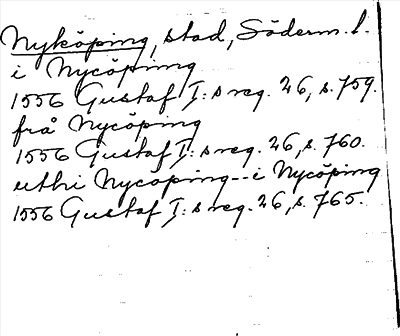 Nyköping, stad, Söderm. l.
i Nycöping
1556 Gustaf I:s reg. 26, s. 759.
frå Nycöping
1556 Gustaf I:s reg. 26, s. 760.
uthi Nycöping -- i Nycöping
1556 Gustaf I:s reg. 26, s. 765.